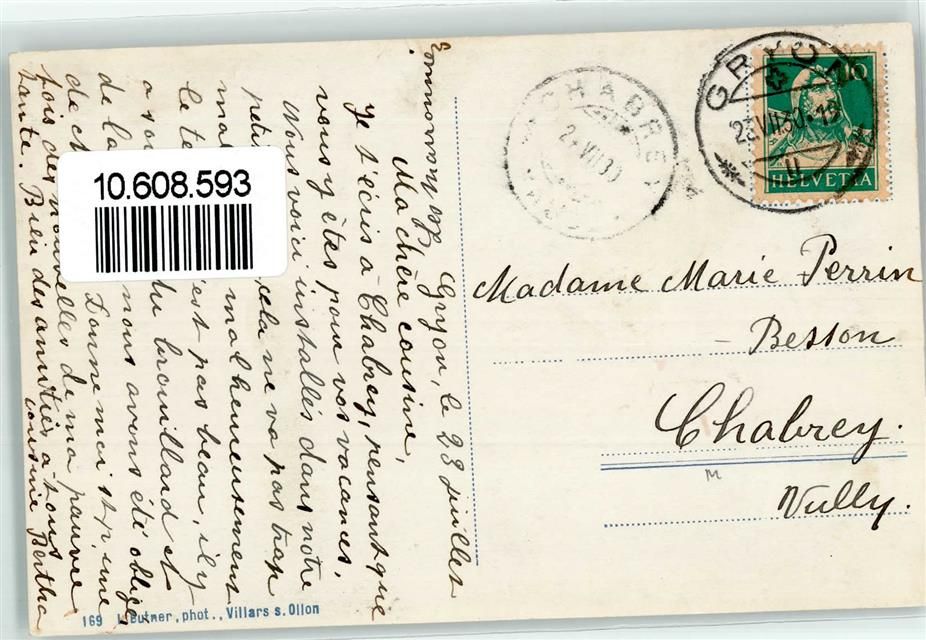 Gryon, le 23 juillet
Ma chère cousine,
Je t'écris à Chabrey, pensant que
vous y êtes pour vos vacances.
Nous voici installés dans notre
peti cela ne va pas trop
mal malheureusement
le te est pas beau, il y
a so du brouillard et
de la nous avons été oblig
de c Donne moi st. p. une
fois des nouvelles de ma pauvre
tante. Bien des amitiés à tous
cousine Bertha
10.608.593
169 Leutner, phot., Villars s. Ollon
CHABREY
24 VII 30
GRYON
23.VII.30.-12
10
HELVETIA
Madame Marie Perrin
- Besson
Chabrey.
M
Vully.